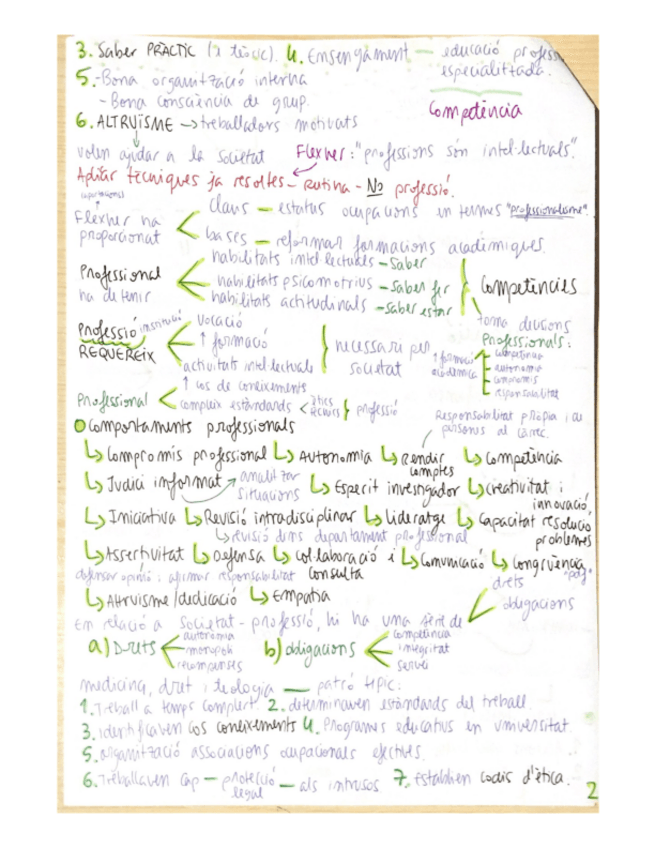 3. Saber PRÀCTIC (i teòric). 4. Ensenyament — educació profess
especialitzada.
5. - Bona organització interna
- Bona consciència de grup.
Competència
6. ALTRUISME → treballadors motivats
volen ajudar a la societat Flexner: "professions són intel·lectuals".
Aplicar tècniques ja resoltes - Rutina - No professió.
(aportacions)
Flexner ha proporcionat
claus — estatus ocupacions en termes "professionalisme"
bases — reformar formacions acadèmiques.
Professional ha de tenir
habilitats intel·lectuals - Saber
habilitats psicomotrius - Saber fer
habilitats actitudinals - saber estar
Competències
Professió institució
REQUEREIX
vocació
↑ formació
activitats intel·lectuals
necessari per societat
toma decisions
Professionals:
↑ formació acadèmica
competència
autonomia
compromís
responsabilitat
Professional
↑ cos de coneixements
compleix estàndards
ètics
tècnics
professió
Responsabilitat pròpia i de
persones al càrrec.
Comportaments professionals
Compromís professional Autonomia Rendir comptes Competència
Judici informat → analitzar situacions Esperit investigador creativitat i innovació,
Iniciativa Revisió intradisciplinar Lideratge Capacitat resolució problemes
revisió dins departament professional
Assertivitat Defensa col·laboració i consulta Comunicació Congruència
defensar opinió i afirmar responsabilitat
Altruisme/dedicació Empatia
En relació a Societat - professió, hi ha una sèrie de
drets
obligacions
a) Drets
autonomia
monopoli
recompenses
b) obligacions
competència
integritat
servei
medicina, dret i teologia — patró típic:
1. Treball a temps complert 2. determinaven estàndards del treball.
3. identificaven cos coneixements 4. Programes educatius en universitat.
5. organització associacions ocupacionals efectives.
6. Treballaven cap — protecció legal — als intrusos 7. establien codis d'ètica.
2